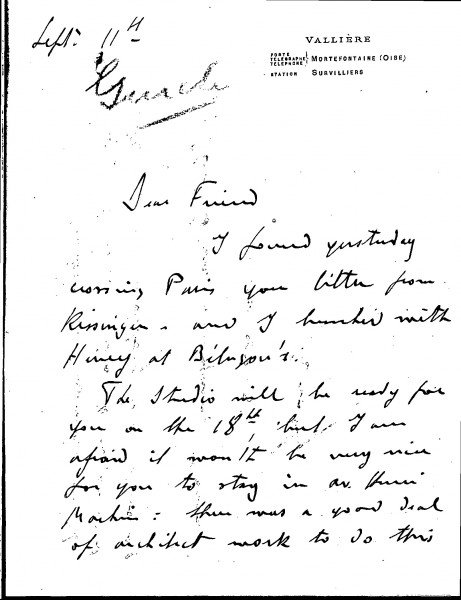 Sept: 11th
VALLIÈRE
POSTE
TÉLÉGRAPHE
TÉLÉPHONE
MORTEFONTAINE (OISE)
STATION SURVILLIERS
Dear Friend
I found yesterday
crossing Paris your letter from
Kissingen. and I lunched with
Henry at Béhagou's.
The Studio will be ready for
you on the 18th but I am
afraid it won't be very nice
for you to stay in av. Henri
Martin: there was a good deal
of architect work to do this